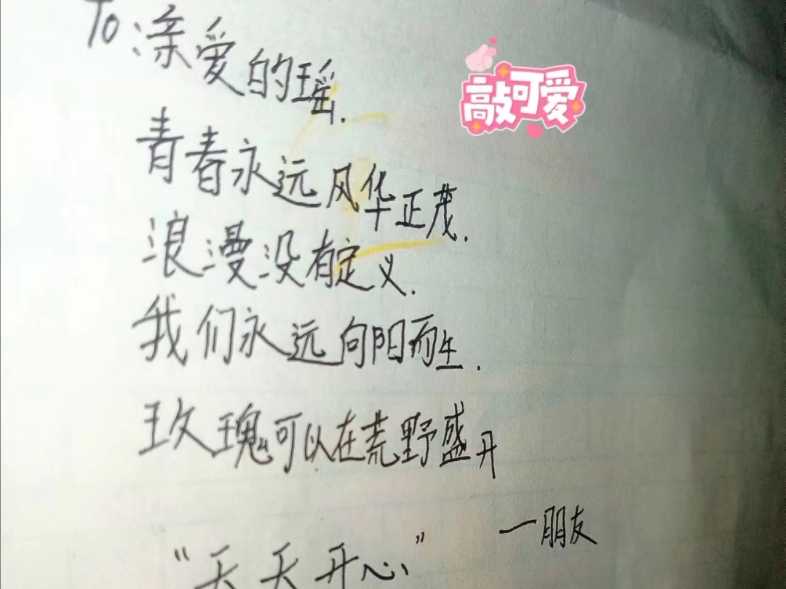 To:亲爱的瑶.
敲可爱
青春永远风华正茂.
浪漫没有定义.
我们永远向阳而生.
玫瑰可以在荒野盛开
一朋友
“天天开心”